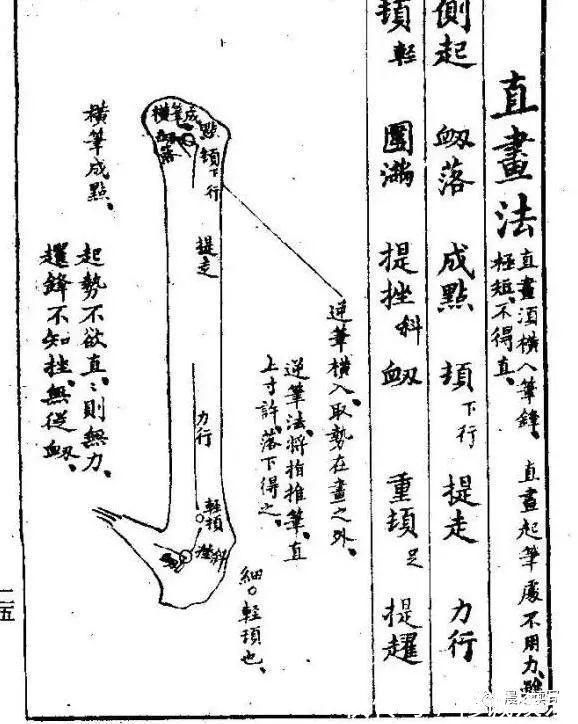 直畫法
直畫須橫入筆鋒、
極短、不得直。
直畫起筆處不用力、雖
側起 衂落 成點 頓下行 提走 力行
頓輕 圓滿 提挫斜衂 重頓足 提趯
逆筆橫入、取勢在畫之外、
逆筆法、將指推筆、直
上寸許、落下得之、
細〇輕頓也、
橫筆成
點頓下行
衂落
提走
力行
輕頓
挫斜
橫筆成點、
起勢不欲直、直則無力、
趯鋒不知挫、無從衂、
二五